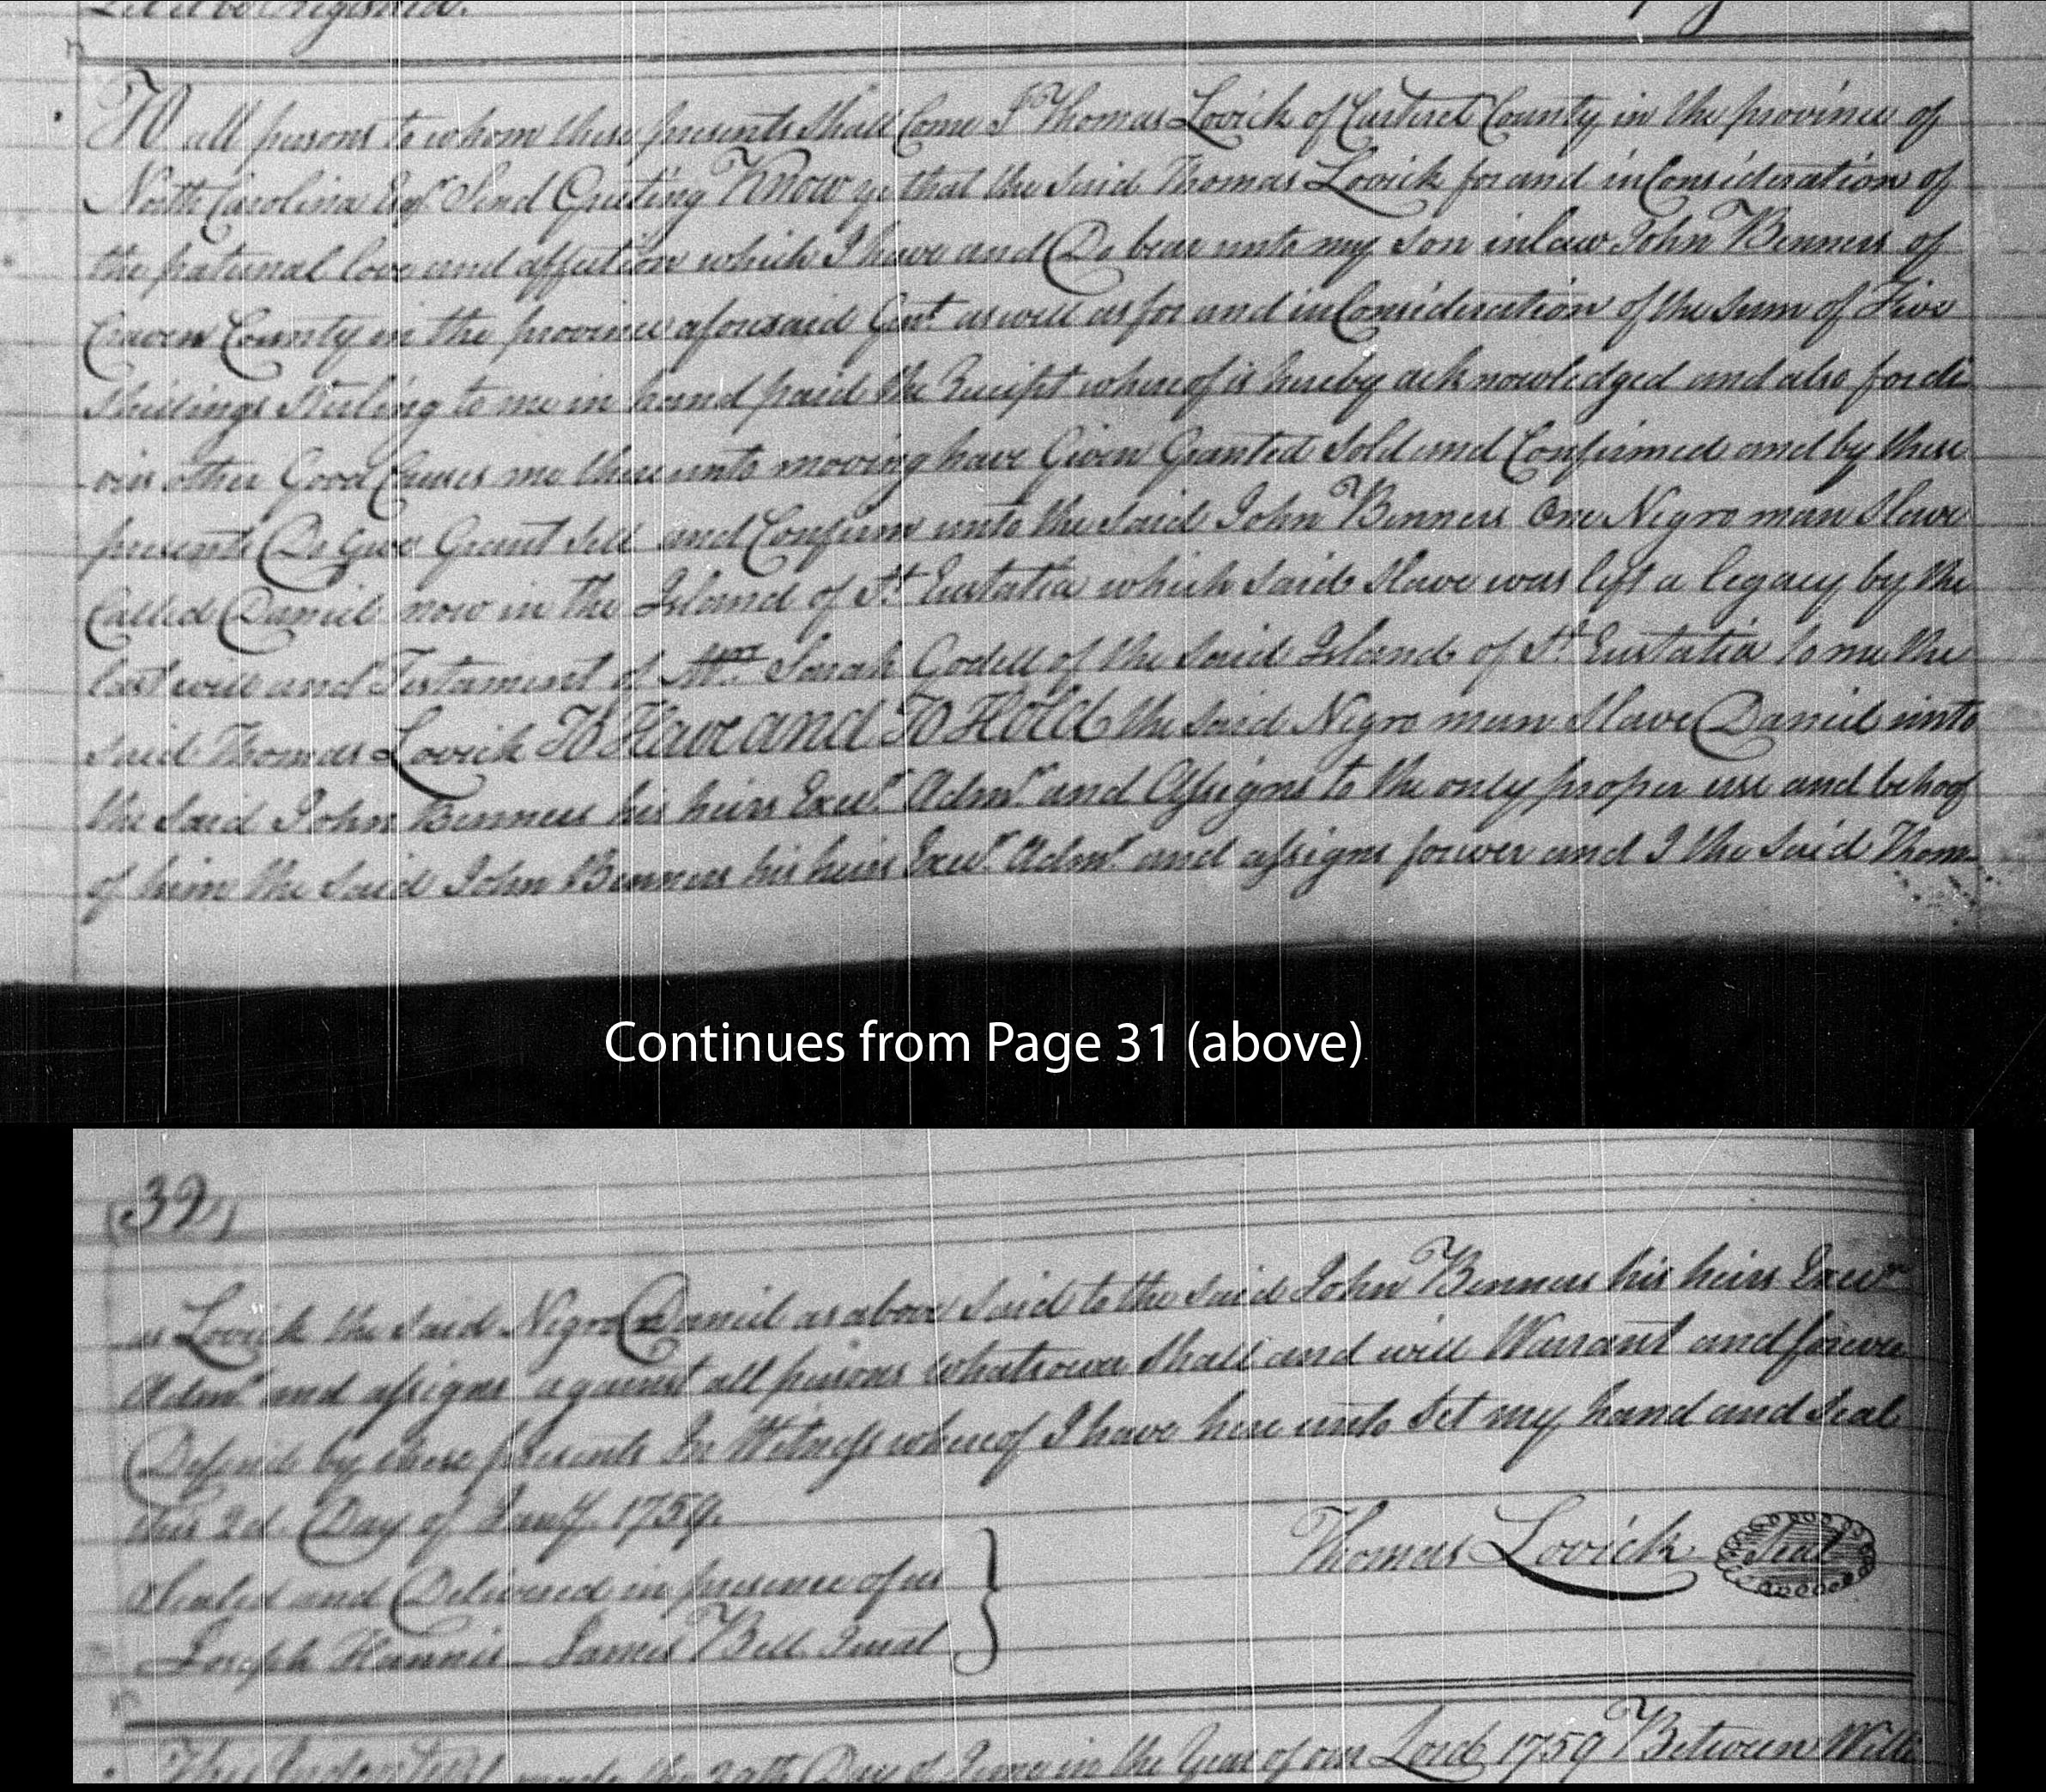 Let it be Registered.
To all persons to whom these presents Shall Come I Thomas Lovick of Carteret County in the province of
North Carolina Esqr. Send Greeting Know ye that the said Thomas Lovick for and in Consideration of
the paternal love and affection which I have and Do bear unto my Son in law John Benners of
Craven County in the province aforesaid Gent. as well as for and in Consideration of the Sum of Five
Shillings Sterling to me in hand paid the Receipt whereof is hereby acknowledged and also for di
-vers other Good Causes me thereunto moving have Given Granted Sold and Confirmed and by these
presents Do Give Grant Sell and Confirm unto the said John Benners One Negro man Slave
Called Daniel now in the Island of St. Eustatia which said Slave was left a legacy by the
last will and Testament of Mrs. Sarah Godell of the Said Island of St. Eustatia to me the
said Thomas Lovick To Have and To Hold the said Negro man Slave Daniel unto
the said John Benners his heirs Execr. Admr. and Assigns to the only proper use and behoof
of him the said John Benners his heirs Execr. Admr. and assigns forever and I the Said Thom
Continues from Page 31 (above)
(32)
as Lovick the said Negro Daniel as above said to the said John Benners his heirs Execr
Admr and assigns against all persons whatsoever Shall and will Warrant and forever
Defend by these presents In Witness whereof I have here unto Set my hand and Seal
this 2d. Day of Jany. 1759.
Sealed and Delivered in presence of us
Thomas Lovick Seal
Joseph Hannis James Bell Jurat
This Indenture made the 20th Day of June in the Year of our Lord 1759 Between Willi